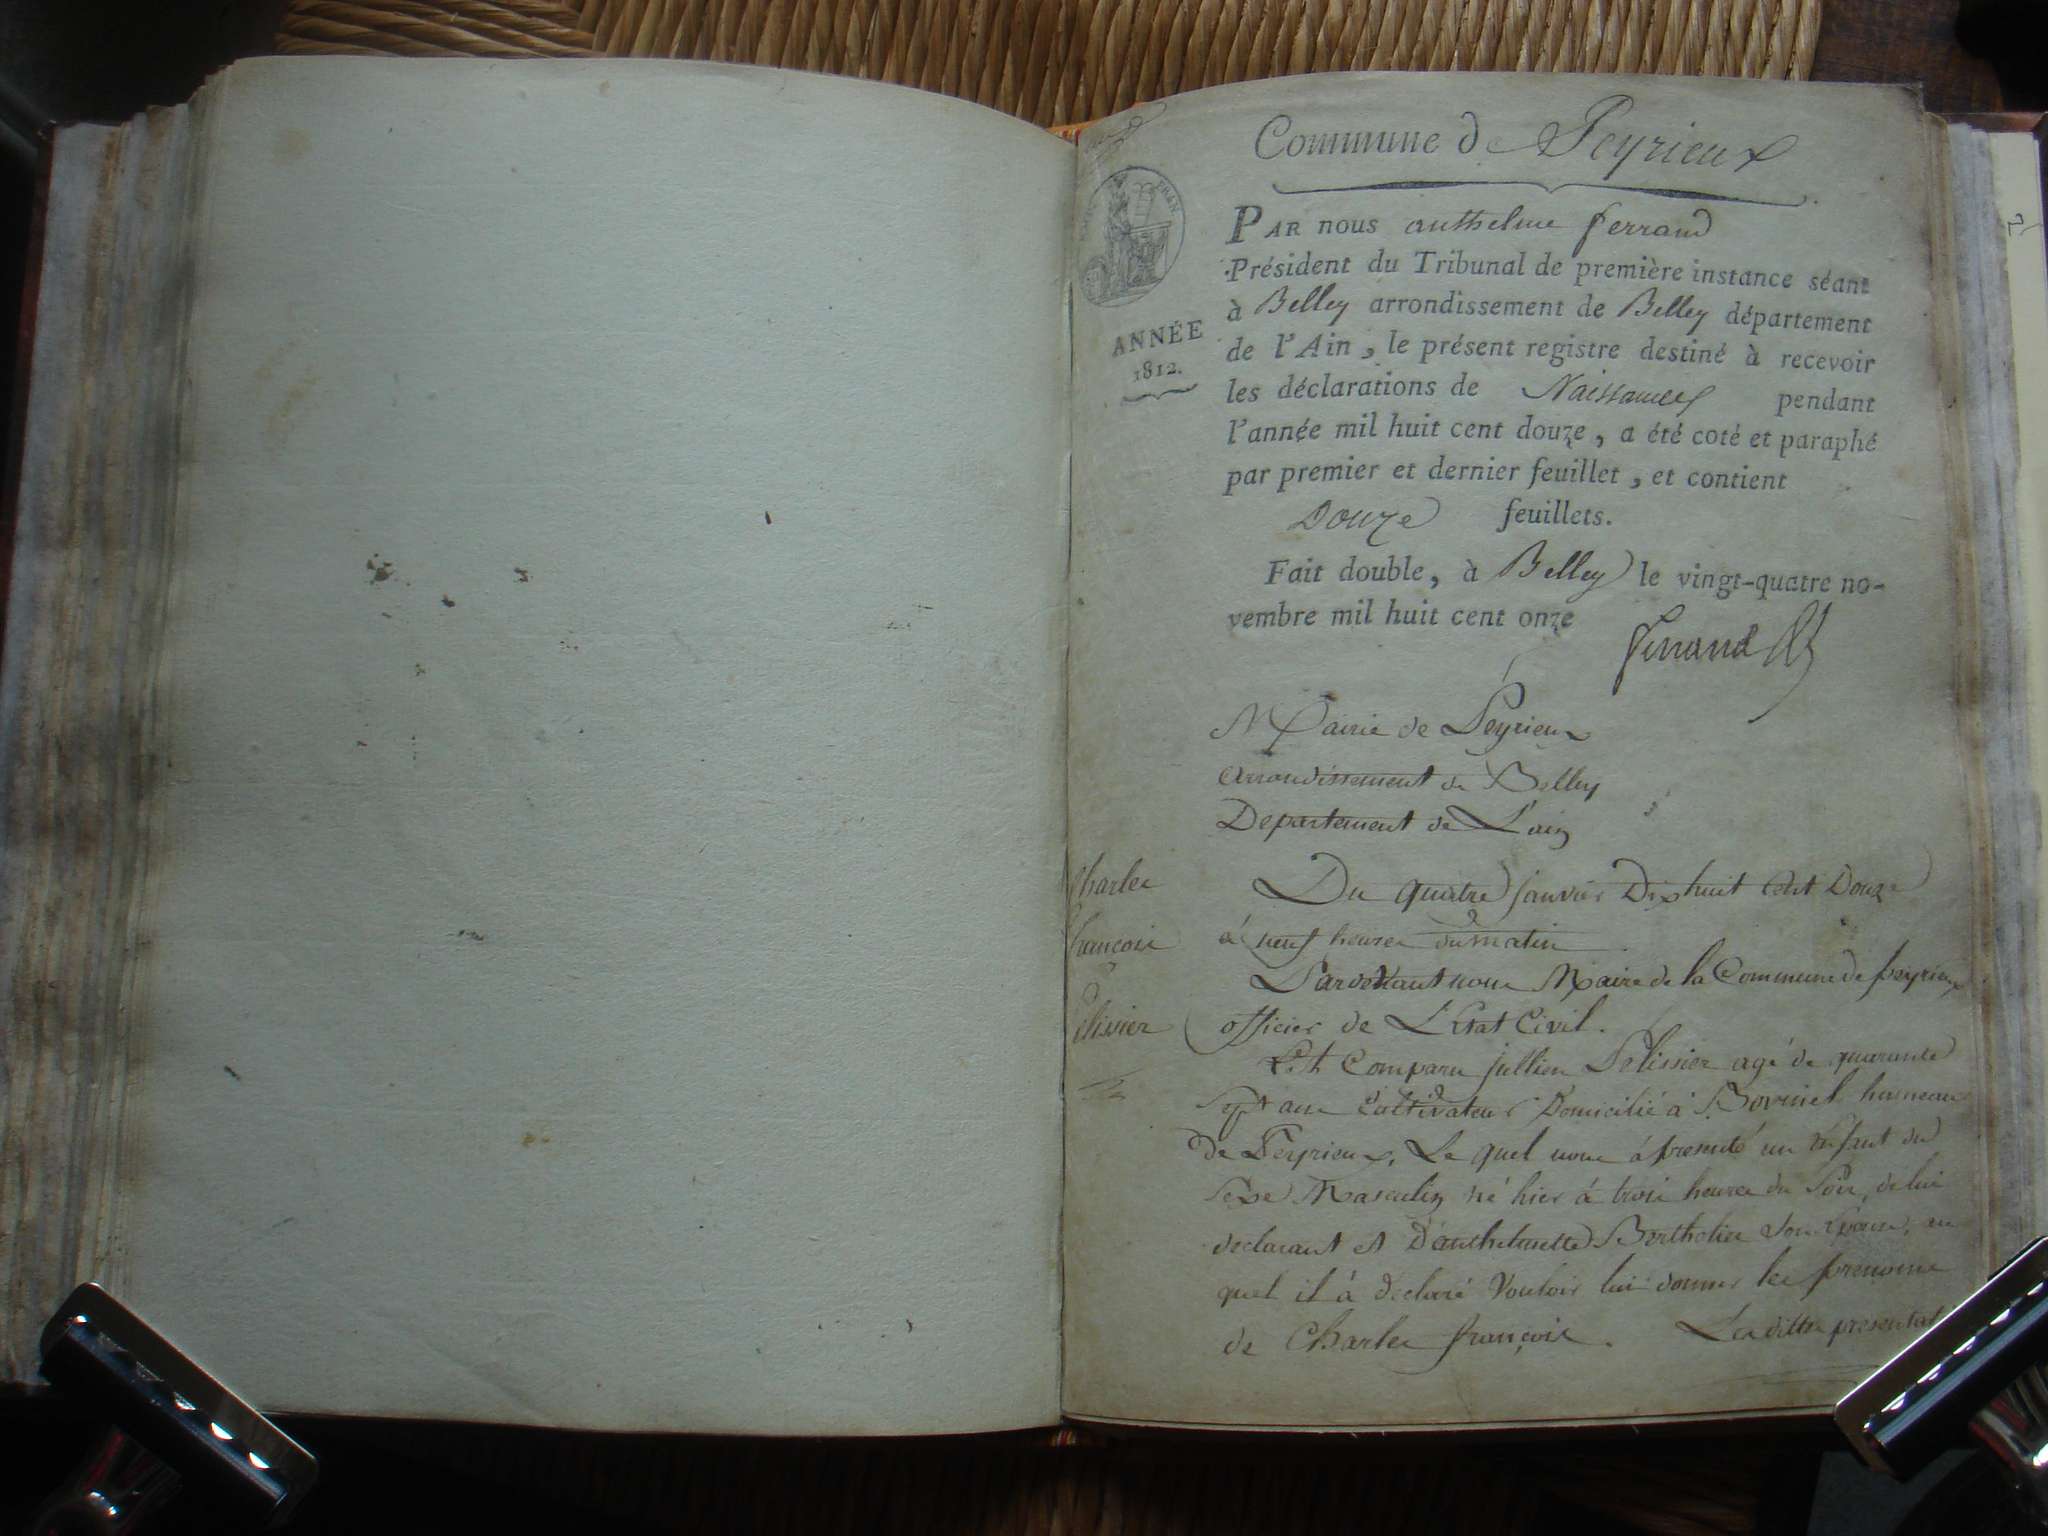 Commune de Peyrieux
PAR nous anthelme ferrand
Président du Tribunal de première instance séant
à Belley arrondissement de Belley département
de l'Ain, le présent registre destiné à recevoir
les déclarations de Naissances pendant
l'année mil huit cent douze, a été coté et paraphé
par premier et dernier feuillet, et contient
Douze feuillets.
Fait double, à Belley le vingt-quatre no-
vembre mil huit cent onze
ferrand
ANNÉE
1812.
Mairie de Peyrieux
Arrondissement de Belley
Departement de L'ain
Charles
françois
Pelissier
Du quatre janvier Dixhuit Cent Douze
à neuf heures du matin
Pardevant nous Maire de la Commune de peyrieux
officier de L'Etat Civil.
Est Comparu jullien Pelissier agé de quarante
sept ans Cultivateur Domicilié à Bovinel hameau
de Peyrieux, Le quel nous á presenté un enfant du
sexe Masculin né hier á trois heures du soir, de lui
declarant et D'anthelmette Berthelier son Epouse, au
quel il á declaré Vouloir lui donner les prenoms
de Charles françois. Les dittes presentat